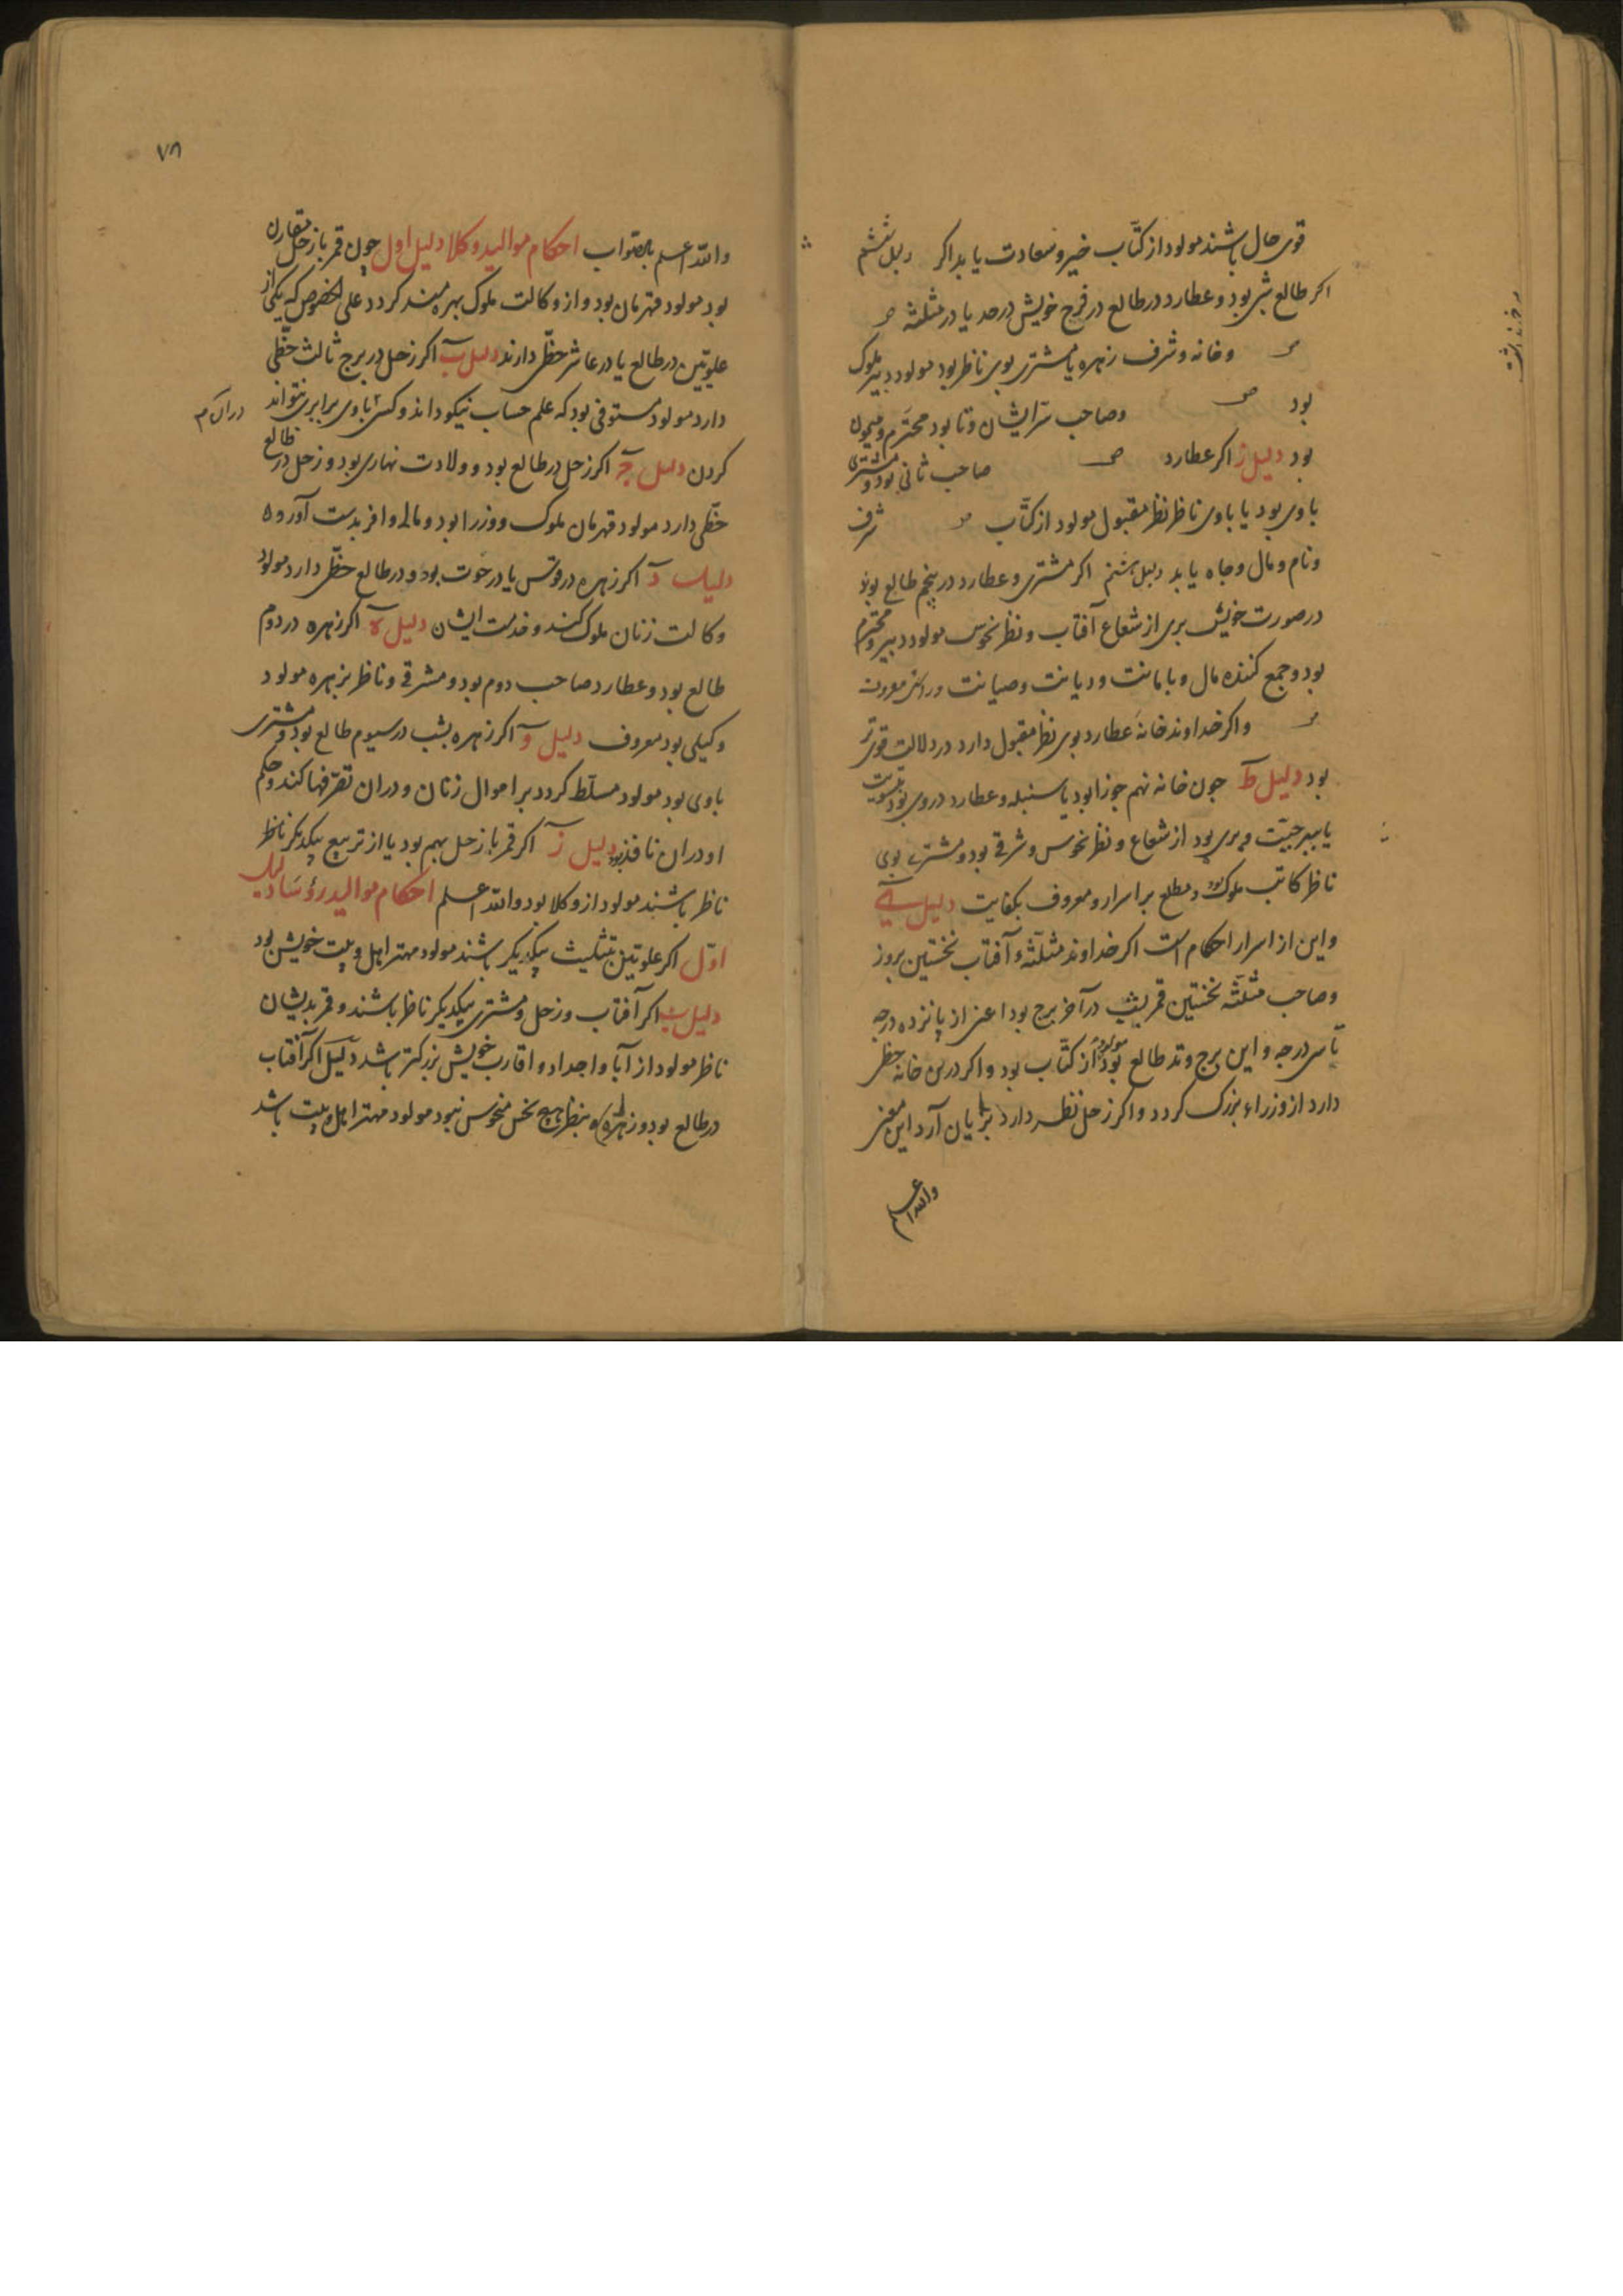 قوی حال باشند مولود از کتّاب خیر و سعادت یابد اکر دلیل ششم
اکر طالع بشری بود و عطارد در طالع در فرح خویش در حد یا در مثلثه
و خانه و شرف زهره یا مشتری بوی ناظر بود مولود دبیر ملوک
بود و صاحب سرّ ایشان و تا بود محترم و میمون
بود دلیل ز اکر عطارد صاحب ثانی بود و مشتری
با وی بود یا با وی ناظر نظر مقبول مولود از کتّاب شرف
و نام و مال و جاه یابد دلیل هشتم اکر مشتری و عطارد در پنجم طالع بود
در صورت خویش بری از شعاع آفتاب و نظر نحوس مولود دبیر و محترم
بود و جمع کننده مال و با مانت و دیانت و صیانت و
و اکر خداوند خانهٔ عطارد بوی نظر مقبول دارد در دلالت قوی تر
بود دلیل ط جون خانه نهم جوزا بود یا سنبله و عطارد در وی بود
یا و بری بود از شعاع و نظر نحوس و شرقی بود و مشتری بوی
ناظر کاتب ملوک بود و مطلع بر اسرار و معروف بکفایت دلیل ی
و این از اسرار احکام است اکر خداوند مثلّثه و آفتاب نخستین بروز
و صاحب مثلّثه نخستین قمر بشب در آخر برج بود اعنی از پانزده درجه
تا سی درجه و این برج وتد طالع بود مولود از کتّاب بود و اکر درین خانه حظی
دارد از وزراء بزرک کردد و اکر زحل نظر دارد بزیان آرد این معنی
والله اعلم
۷۸
والله اعلم بالصّواب احکام موالید وکلا دلیل اول چون قمر با زحل مقارن
بود مولود قهرمان بود و از وکالت ملوک بهره مند کردد علی الخصوص که یکی از
علویّین در طالع یا در عاشر حظّی دارند دلیل ب اکر زحل در برج ثالث حظّی
دارد مولود مستوفی بود که علم حساب نیکو داند و کسی با وی برابری نتواند
کردن دلیل ج اکر زحل در طالع بود و ولادت نهاری بود و زحل در طالع
حظّی دارد مولود قهرمان ملوک و وزرا بود و مالی وافر بدست آورده
دلیل د اکر زهره در قوس یا در حوت بود و در طالع حظّی دارد مولود
وکالت زنان ملوک کند و خدمت ایشان دلیل ه اکر زهره در دوم
طالع بود و عطارد صاحب دوم بود و مشرقی و ناظر بزهره مولود
وکیلی بود معروف دلیل و اکر زهره بشب در سیوم طالع بود و مشتری
با وی بود مولود مسلّط کردد بر اموال زنان و در ان تصرّفها کند و حکم
او در ان نافذ بود دلیل ز اکر قمر با زحل بهم بود یا از تربیع بیکدیکر ناظر
ناظر باشند مولود از وکلا بود والله اعلم احکام موالید رؤسا دلیل
اوّل اکر علویّین بتثلیث بیکدیکر باشند مولود مهتر اهل و بیت خویش بود
دلیل ب اکر آفتاب و زحل و مشتری بیکدیکر ناظر باشند و قمر بدیشان
ناظر مولود از آبا و اجداد و اقارب خویش بزرکتر باشد دلیل اکر آفتاب
در طالع بود و زهره بنظر هیچ نحس منحوس نبود مولود مهتر اهل و بیت باشد